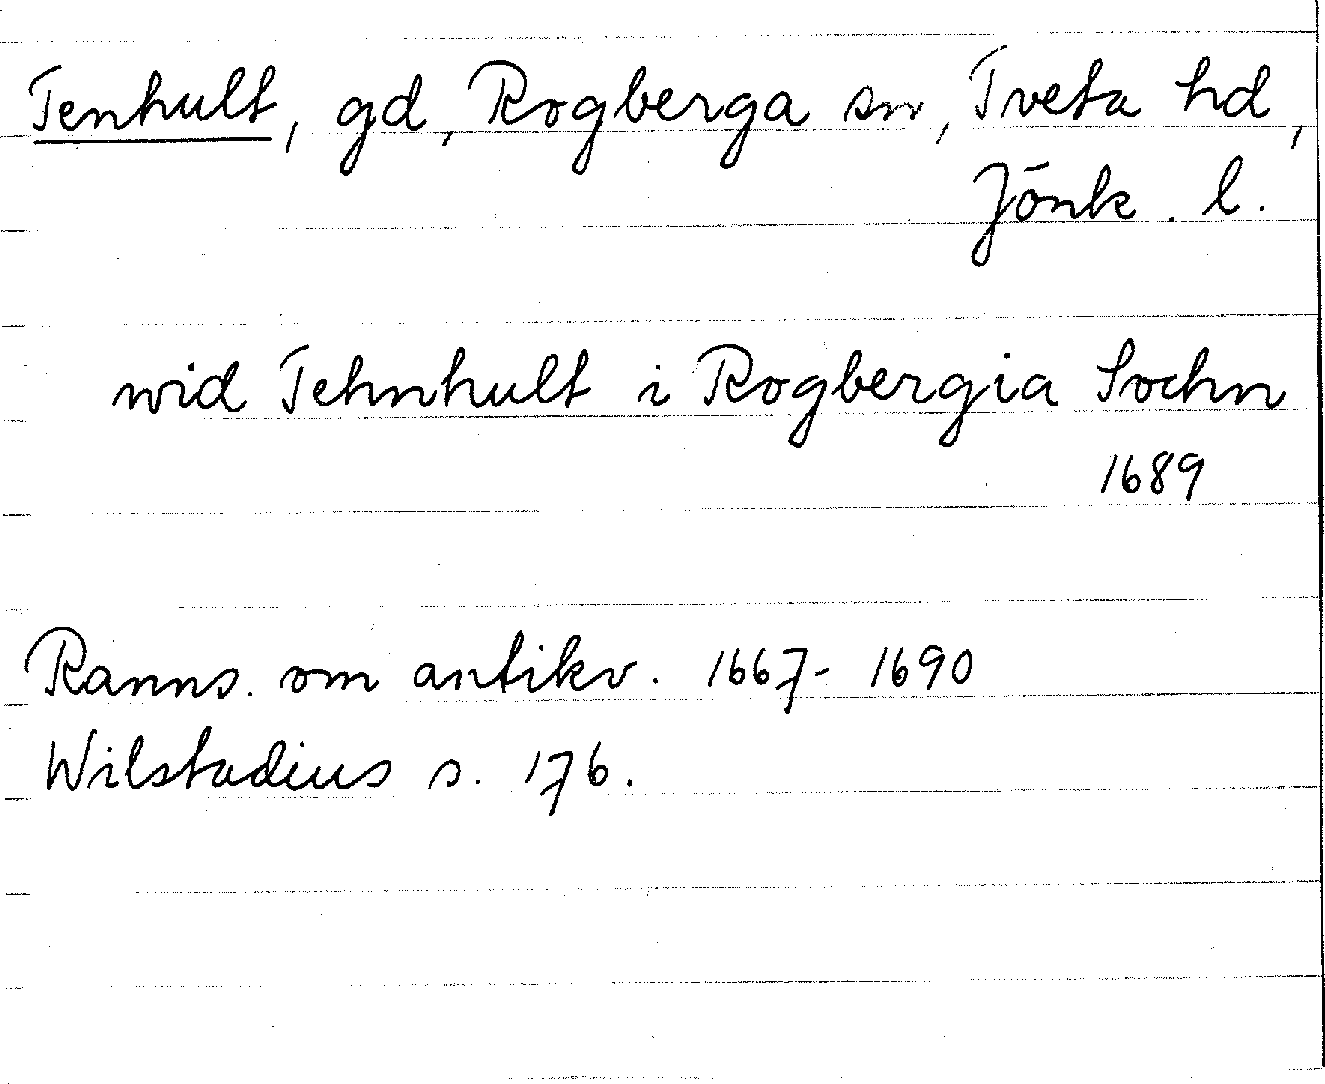 Tenhult, gd, Rogberga sn, Tveta hd,
Jönk. l.
wid Tehnhult i Rogbergia Sochn
1689
Ranns. om antikv. 1667-1690
Wilstadius s. 176.